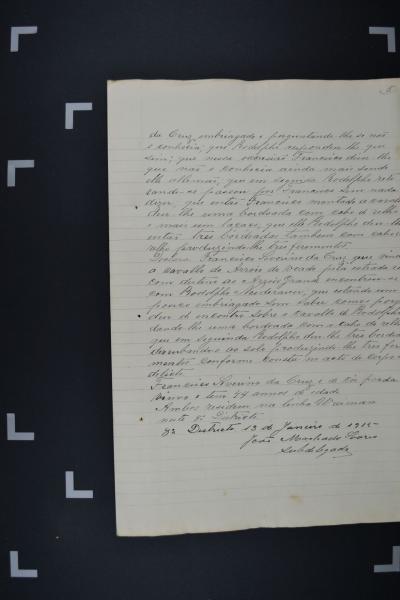 5
da Cruz embriagado e perguntando-lhe se não
o conhecia; que Rodolpho respondeu-lhe que
sim; que nessa occasião Francisco disse-lhe
que não o conhecia ainda mais sendo
elle allemão; que em seguida Rodolpho reti
rando-se passou por Francisco sem nada
dizer, que então Francisco montado a cavallo
deu-lhe uma bordoada com cabo de relho
e mais um laçaço, que elle Rodolpho deu-lhe
então tres bordoadas tambem com cabo
relho produzindo-lhe tres ferimentos.
Francisco Severino da Cruz que vinha
a cavallo do Arroio do Veado pela estrada
com destino ao Arroio Grande encontrou-se
com Rodolpho que estando um
pouco embriagado sem saber como
deu de encontro sobre o cavallo de Rodolpho
dando-lhe uma bordoada com o cabo do relho
que em seguida Rodolpho deu-lhe tres bordoa
derrubando-o ao solo produzindo-lhe tres feri
mentos conforme consta no acto de corpo
delicto.
Francisco Severino da Cruz é de cor parda
viuvo e tem 44 annos de idade
Ambos residem na linha
neste 8º Districto
8º Districto 13 de Janeiro de 1915
João Machado
Subdelegado